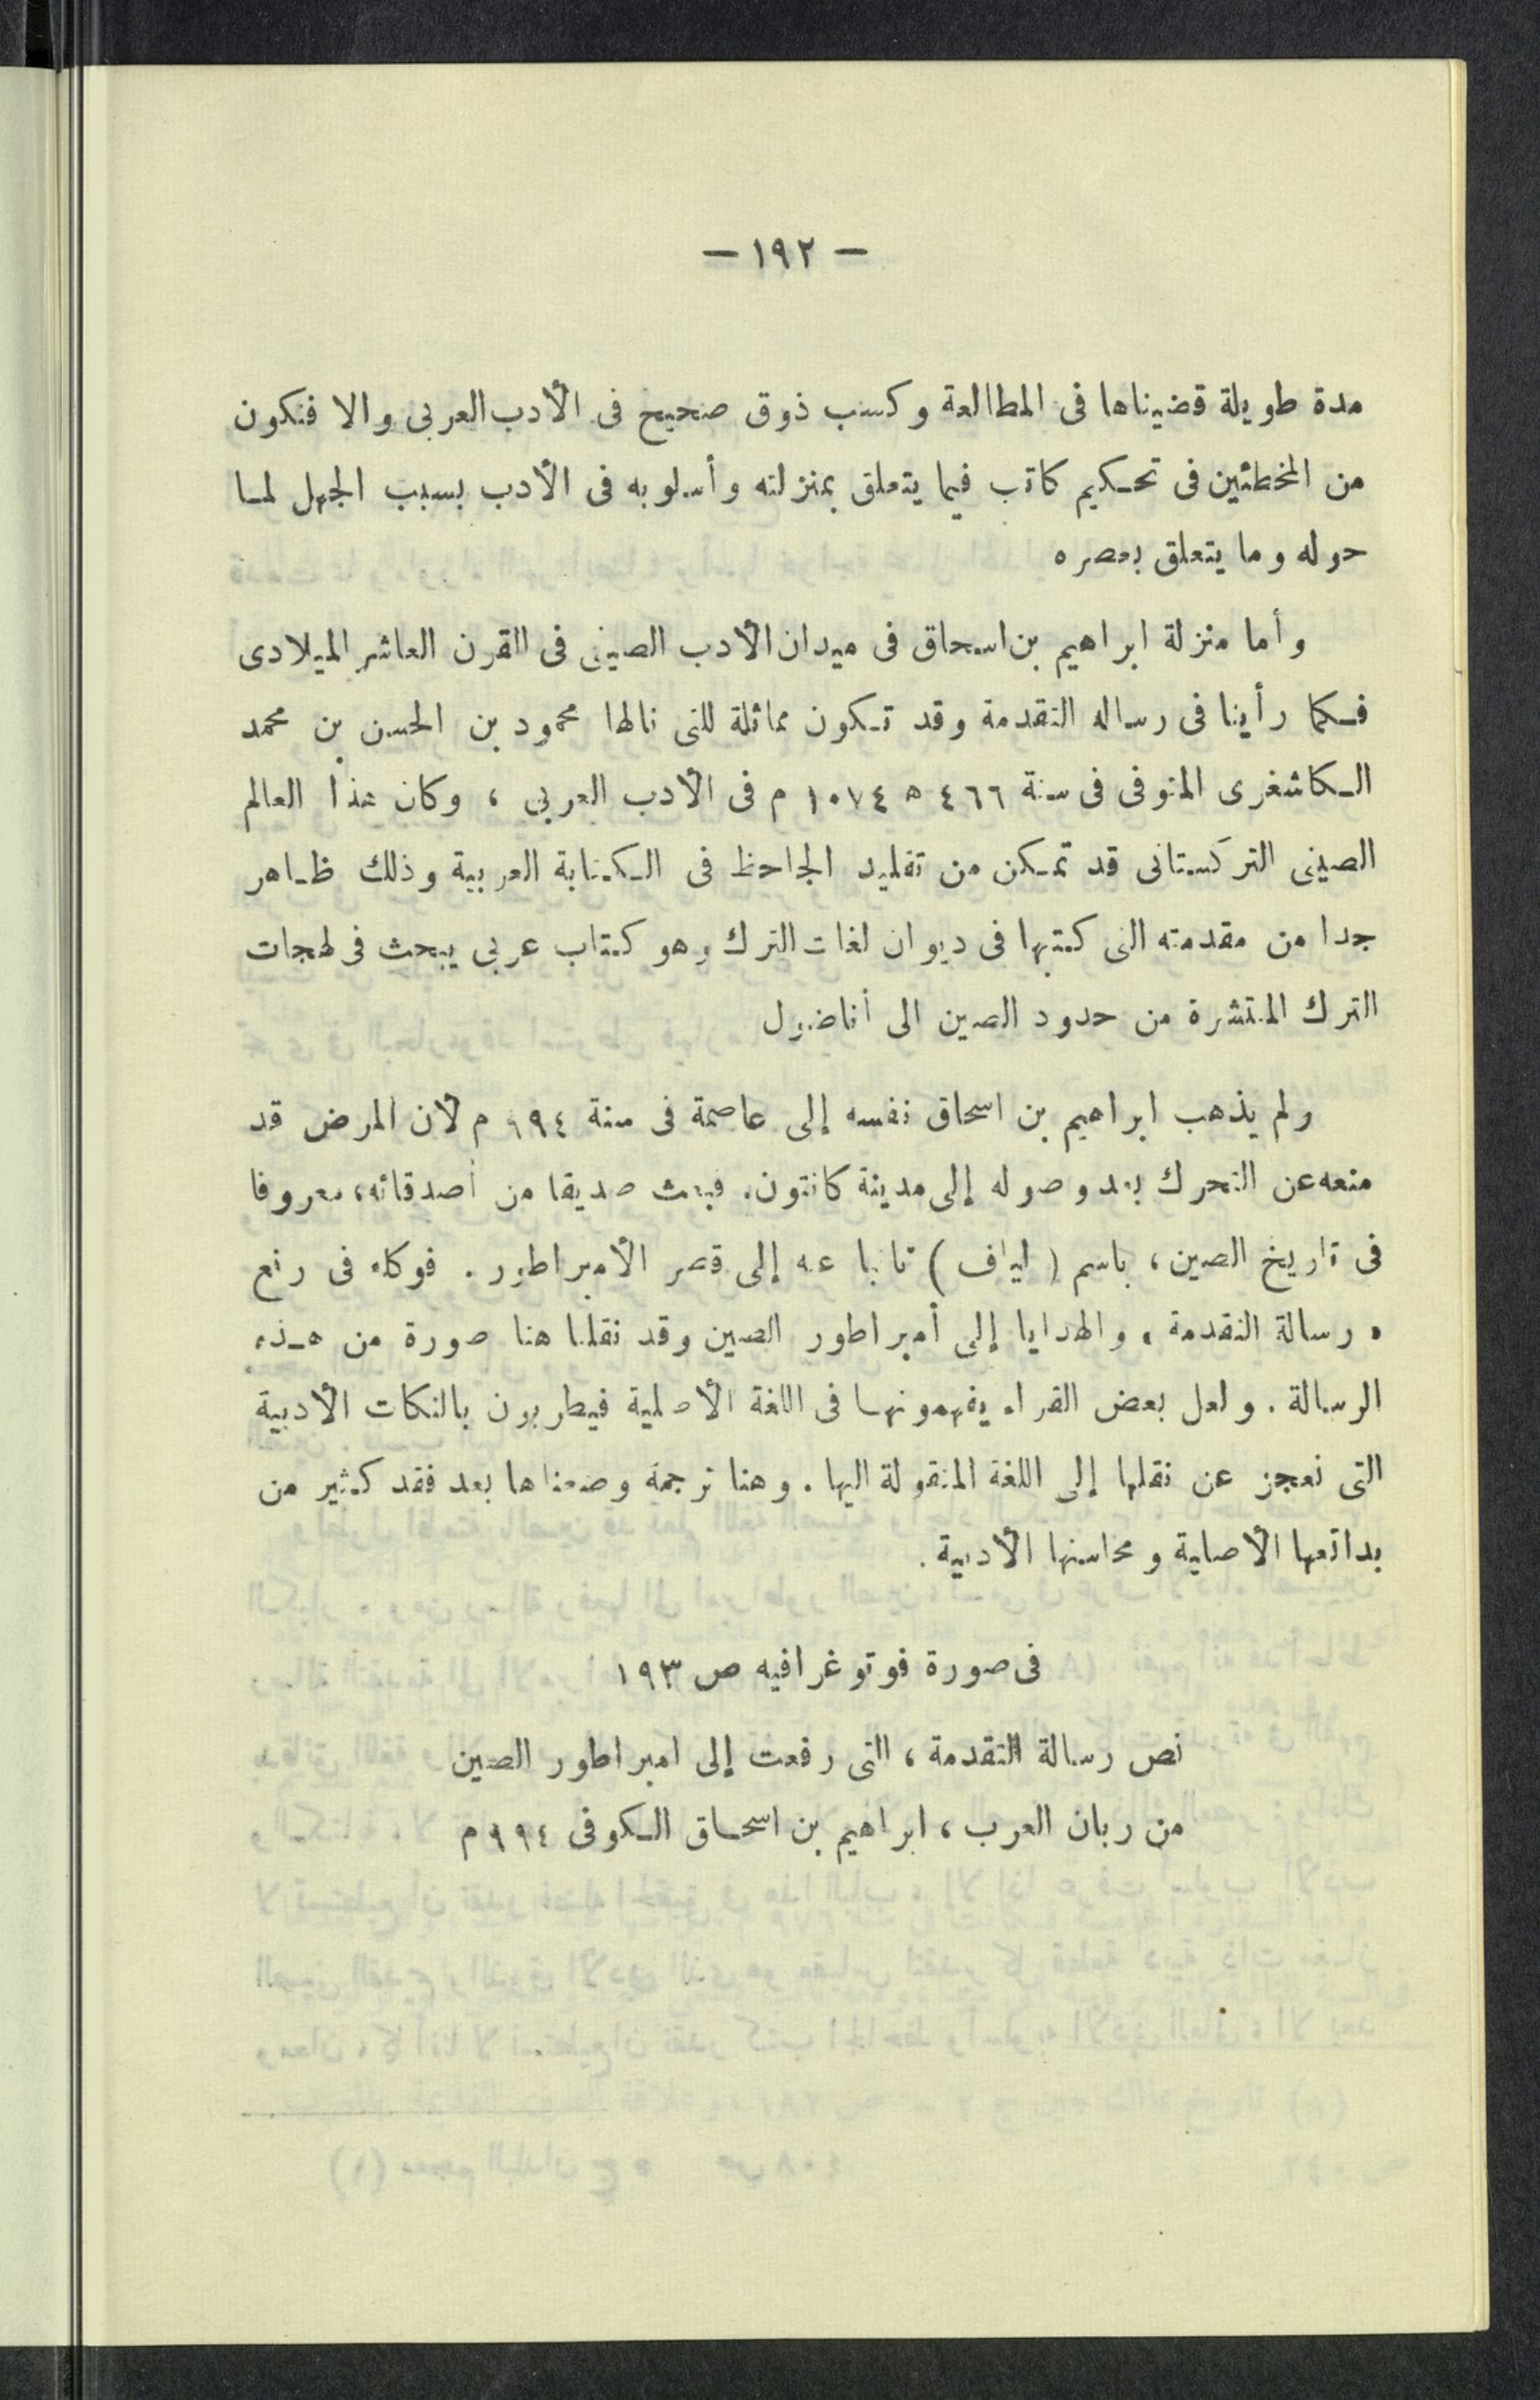 — ١٩٢ —
مدة طويلة قضيناها فى المطالعة وكسب ذوق صحيح فى الأدب العربى والا فنكون
من المخطئين فى تحكيم كاتب فيما يتعلق بمنزلته وأسلوبه فى الأدب بسبب الجهل لما
حوله وما يتعلق بعصره
وأما منزلة ابراهيم بن اسحاق فى ميدان الأدب الصينى فى القرن العاشر الميلادى
فكما رأينا فى رساله التقدمة وقد تكون مماثلة للتى نالها محمود بن الحسن بن محمد
الكاشغرى المتوفى فى سنة ٤٦٦ ه ١٠٧٤ م فى الأدب العربى ، وكان هذا العالم
الصينى التركستانى قد تمكن من تقليد الجاحظ فى الكتابة العربية وذلك ظاهر
جدا من مقدمته التى كتبها فى ديوان لغات الترك وهو كتاب عربى يبحث فى لهجات
الترك المنتشرة من حدود الصين الى أناضول
ولم يذهب ابراهيم بن اسحاق نفسه إلى عاصمة فى سنة ٩٩٤ م لأن المرض قد
منعه عن التحرك بعد وصوله إلى مدينة كانتون. فبعث صديقا من أصدقائه، معروفا
فى تاريخ الصين، باسم ( لياف ) نائبا عنه إلى قصر الأمبراطور . فوكله فى رفع
« رسالة التقدمة » والهدايا إلى أمبراطور الصين وقد نقلنا هنا صورة من هذه
الرسالة . ولعل بعض القراء يفهمونها فى اللغة الأصلية فيطربون بالنكات الأدبية
التى نعجز عن نقلها إلى اللغة المنقولة اليها . وهنا ترجمة وضعناها بعد فقد كثير من
بدائعها الأصلية ومحاسنها الأدبية .
فى صورة فوتوغرافيه ص ١٩٣
نص رسالة التقدمة ، التى رفعت إلى امبراطور الصين
من ربان العرب ، ابراهيم بن اسحاق الكوفى ٩٩٤ م